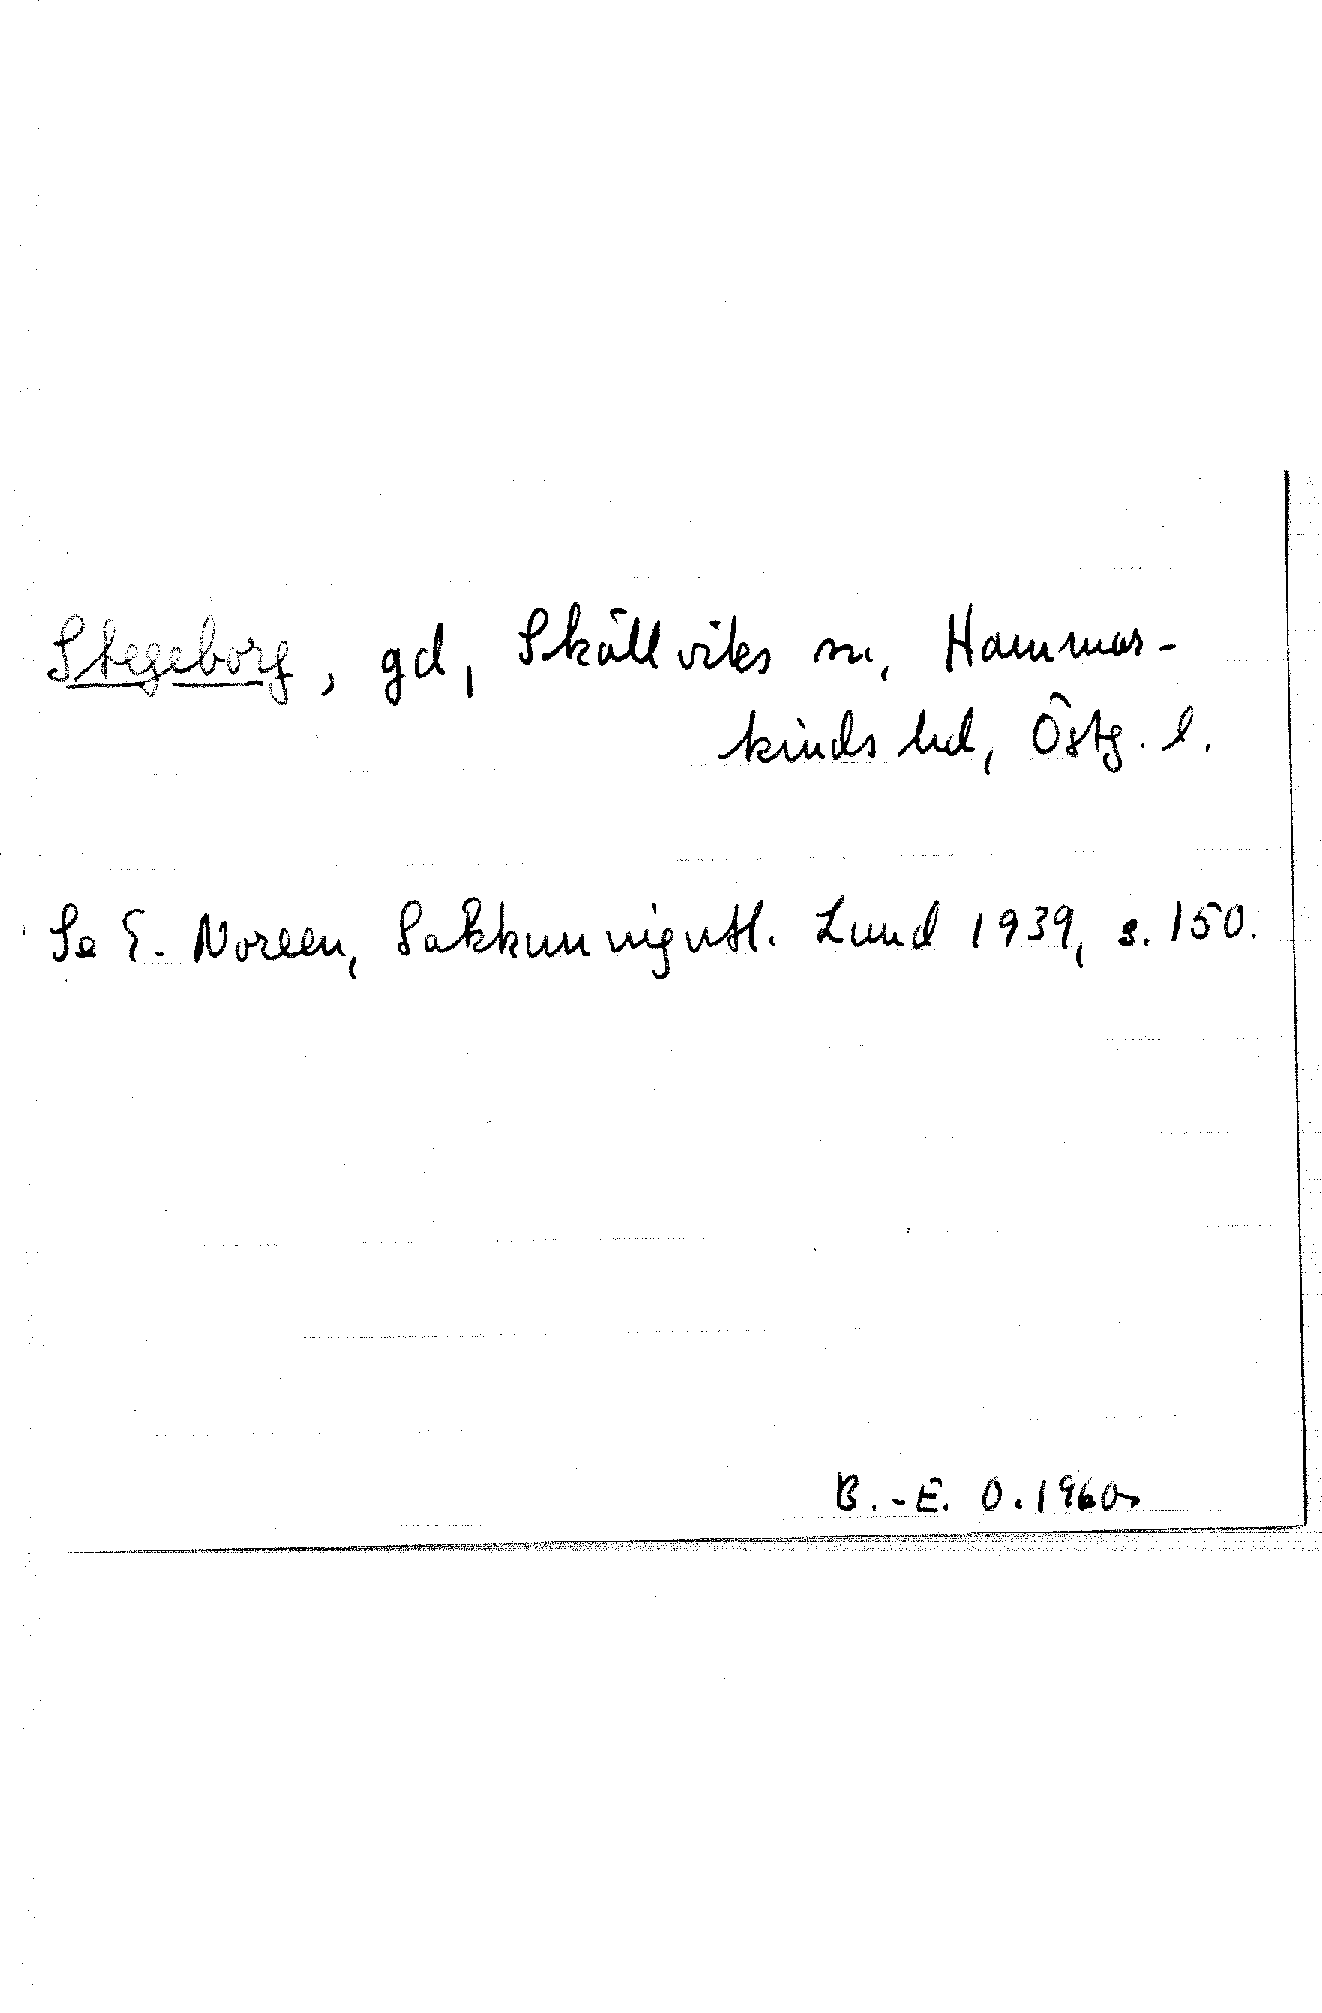 Stegeborg, gd, Skällviks sn, Hammar-
kinds hd, Östg. l.
Se E. Noreen, Sakkunnigutl. Lund 1939, s. 150.
B.-E. O. 1960